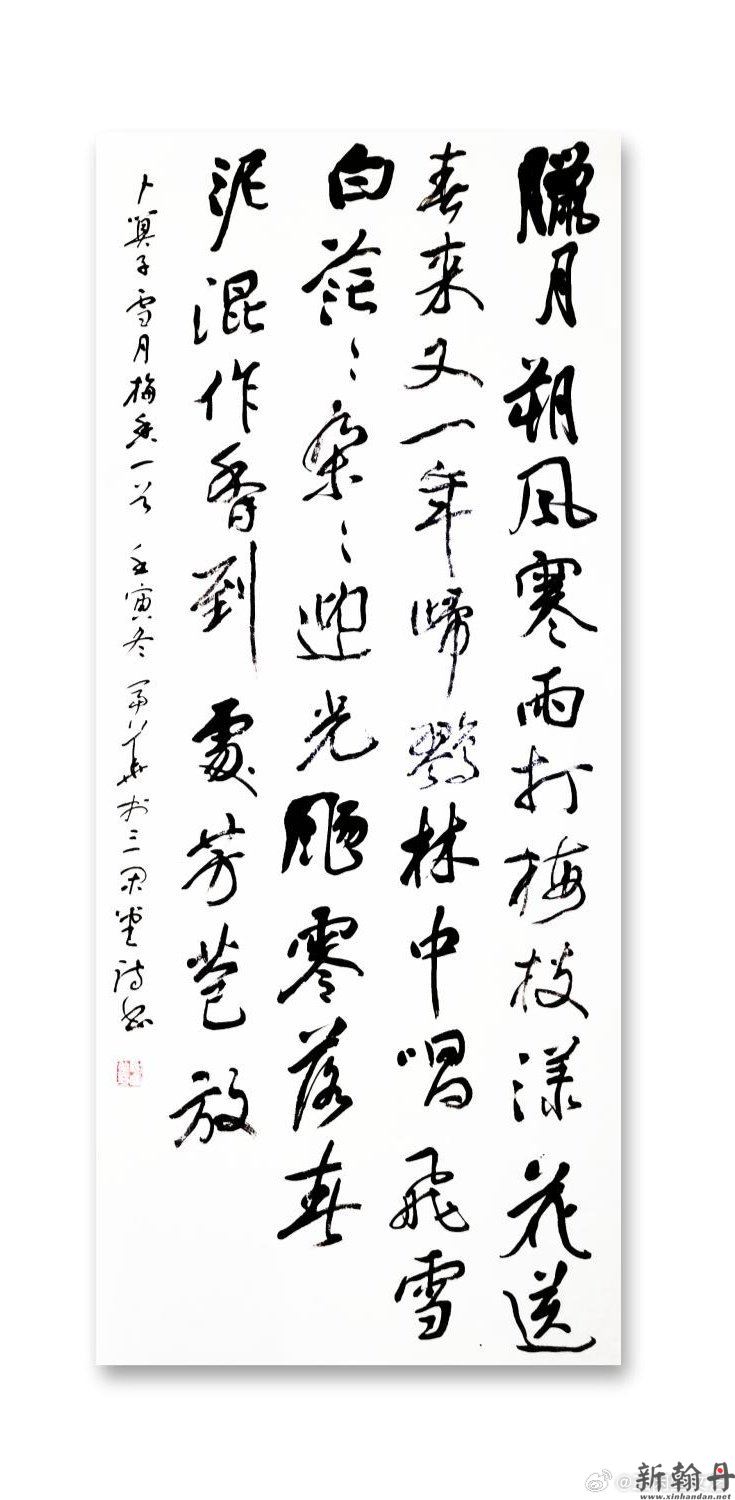 臘月朔風寒雨打梅枝漾花送
春来又一年啼鶯林中唱飛雪
白茫〻朶〻迎光颺零落春
泥混作香到處芳苞放
卜算子 雪月梅香一首 壬寅冬 華书三
新翰丹
www.xinhandan.net